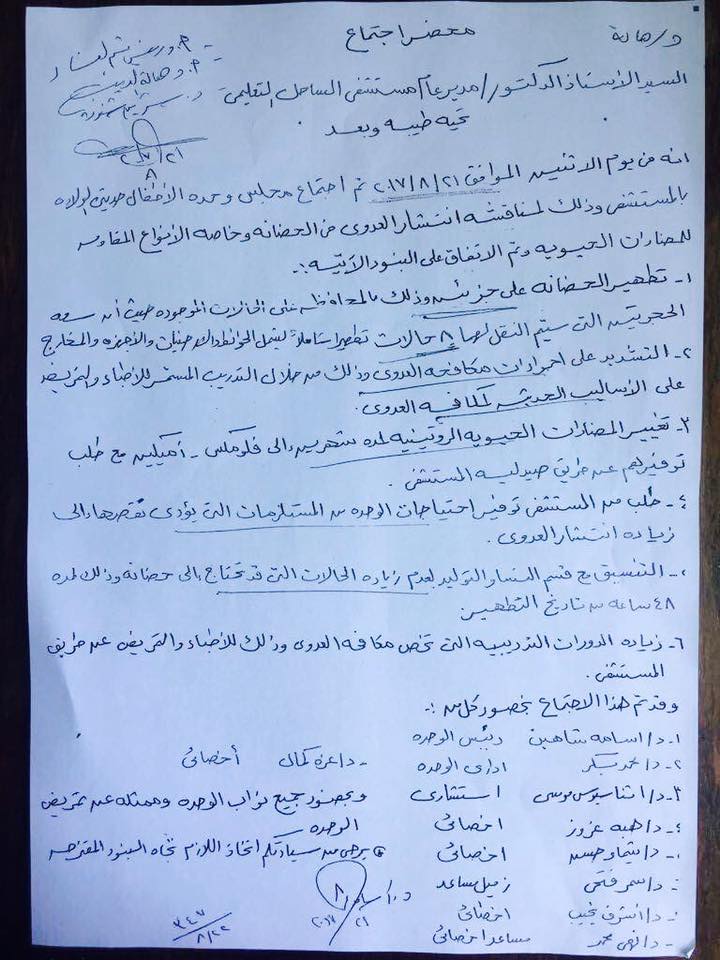 د/ هالة
محضر اجتماع
السيد الأستاذ الدكتور / مدير عام مستشفى الساحل التعليمي
تحيه طيبه وبعد
انه من يوم الاثنين الموافق ٢٠١٧/٨/٢١ تم اجتماع مجلس وحده الأطفال حديثى الولاده
بالمستشفى وذلك لمناقشه انتشار العدوى من الحضانه وخاصه الأنواع المقاومه
للمضادات الحيويه وتم الاتفاق على البنود الآتيه :-
١- تطهير الحضانه على جزئين وذلك بالمحافظه على الحالات الموجوده حيث أن سعه
الحجرتين التى سيتم النقل لهما ٨ حالات تطهيرا شاملاً ليشمل الحوائط والارضيات والأجهزه والمخارج
٢- التشديد على اجراءات مكافحه العدوى وذلك من خلال التدريب المستمر للأطباء والتمريض
على الأساليب الحديثه لمكافحه العدوى.
٣- تغيير المضادات الحيويه الروتينيه لمده شهرين إلى فلوموكس - أميكين مع طلب
توفيرهم عن طريق صيدليه المستشفى.
٤- طلب من المستشفى توفير احتياجات الوحده من المستلزمات التى يؤدى نقصها إلى
زياده انتشار العدوى.
٥- التنسيق مع قسم النسا والتوليد لعدم زياده الحالات التى قد تحتاج إلى حضانه وذلك لمده
٤٨ ساعه من تاريخ التطهير.
٦- زياده الدورات التدريبيه التى تخص مكافحه العدوى وذلك للأطباء والتمريض عن طريق
المستشفى.
وقد تم هذا الاجتماع بحضور كل من :-
١- د/ اسامه شاهين رئيس الوحده
٢- د/ محمد سكر ادارى الوحده - د/ عزة كمال أخصائى
٣- د/ موسى استشارى وبحضور جميع نواب الوحده وممثله عن تمريض
٤- د/ هبه عزوز اخصائى الوحده
د/ شيماء حسن اخصائى يرجى من سيادتكم اتخاذ اللازم تجاه البنود المقترحه
د/ سمر فتحى زميل مساعد
د/ اشرف نجيب اخصائى
د/ نهى محمد مساعد اخصائى
٢٠١٧ ٨ ٢١
٣٤٧
٨/٢٢